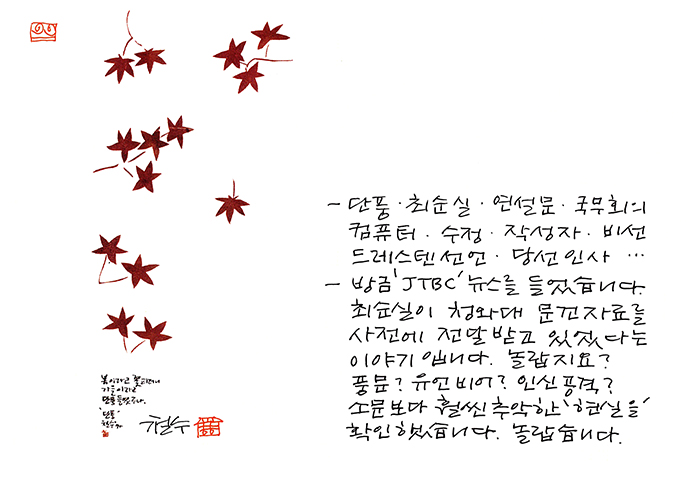 - 단풍·최순실·연설문·국무회의
컴퓨터·수정·작성자·비선
드레스덴선언·당선인사…
- 방금 'JTBC' 뉴스를 들었습니다.
최순실이 청와대 문건자료를
사전에 전달받고 있었다는
이야기입니다. 놀랍지요?
풍문? 유언비어? 인신공격?
소문보다 훨씬 추악한 '현실을'
확인했습니다. 놀랍습니다.
봄이라고 꽃
가을이라고
단풍들었구나.
'단풍'
철수